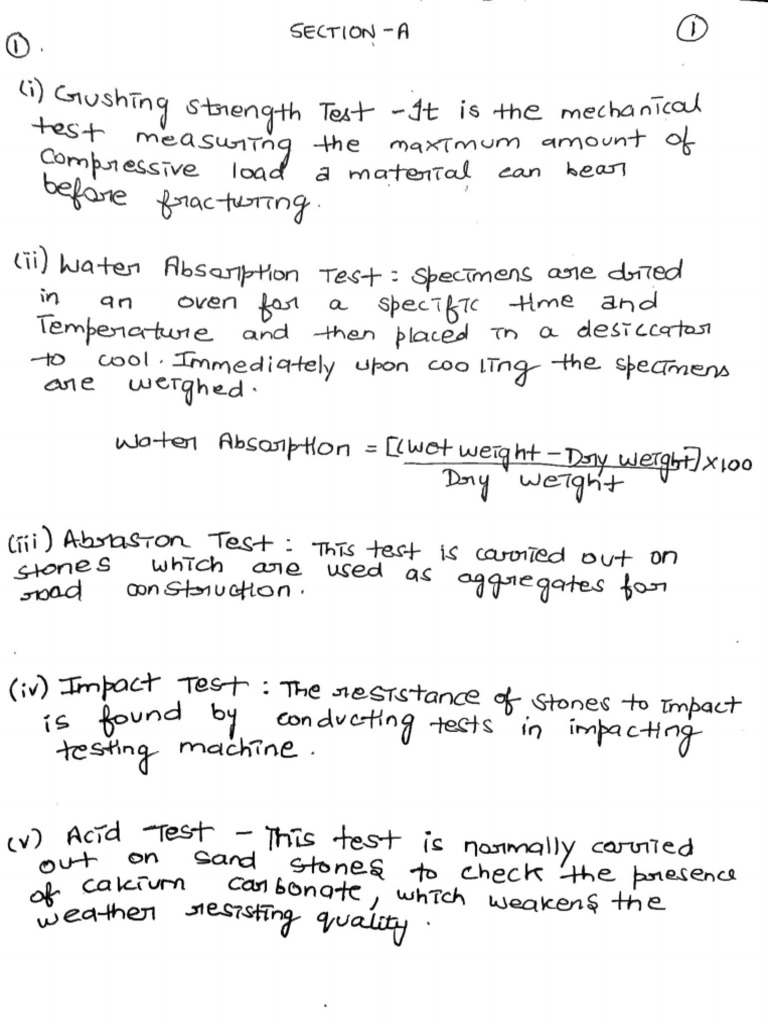 SECTION-A
①
①.
(i) Crushing Strength Test - It is the mechanical
test measuring the maximum amount of
compressive load a material can bear
before fracturing.
(ii) Water Absorption Test: Specimens are dried
in an oven for a specific time and
Temperature and then placed in a desiccator
to cool. Immediately upon cooling the specimens
are weighed.
Water Absorption = [(Wet weight - Dry weight)] x 100
Dry weight
(iii) Abrasion Test: This test is carried out on
stones which are used as aggregates for
road construction.
(iv) Impact Test: The resistance of stones to impact
is found by conducting tests in impacting
testing machine.
(v) Acid Test - This test is normally carried
out on sand stones to check the presence
of calcium carbonate, which weakens the
weather resisting quality.